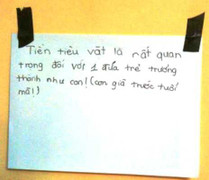 Tiền tiêu vặt là rất quan
trọng đối với 1 đứa trẻ trưởng
thành như con! (con già trước tuổi
mà!)